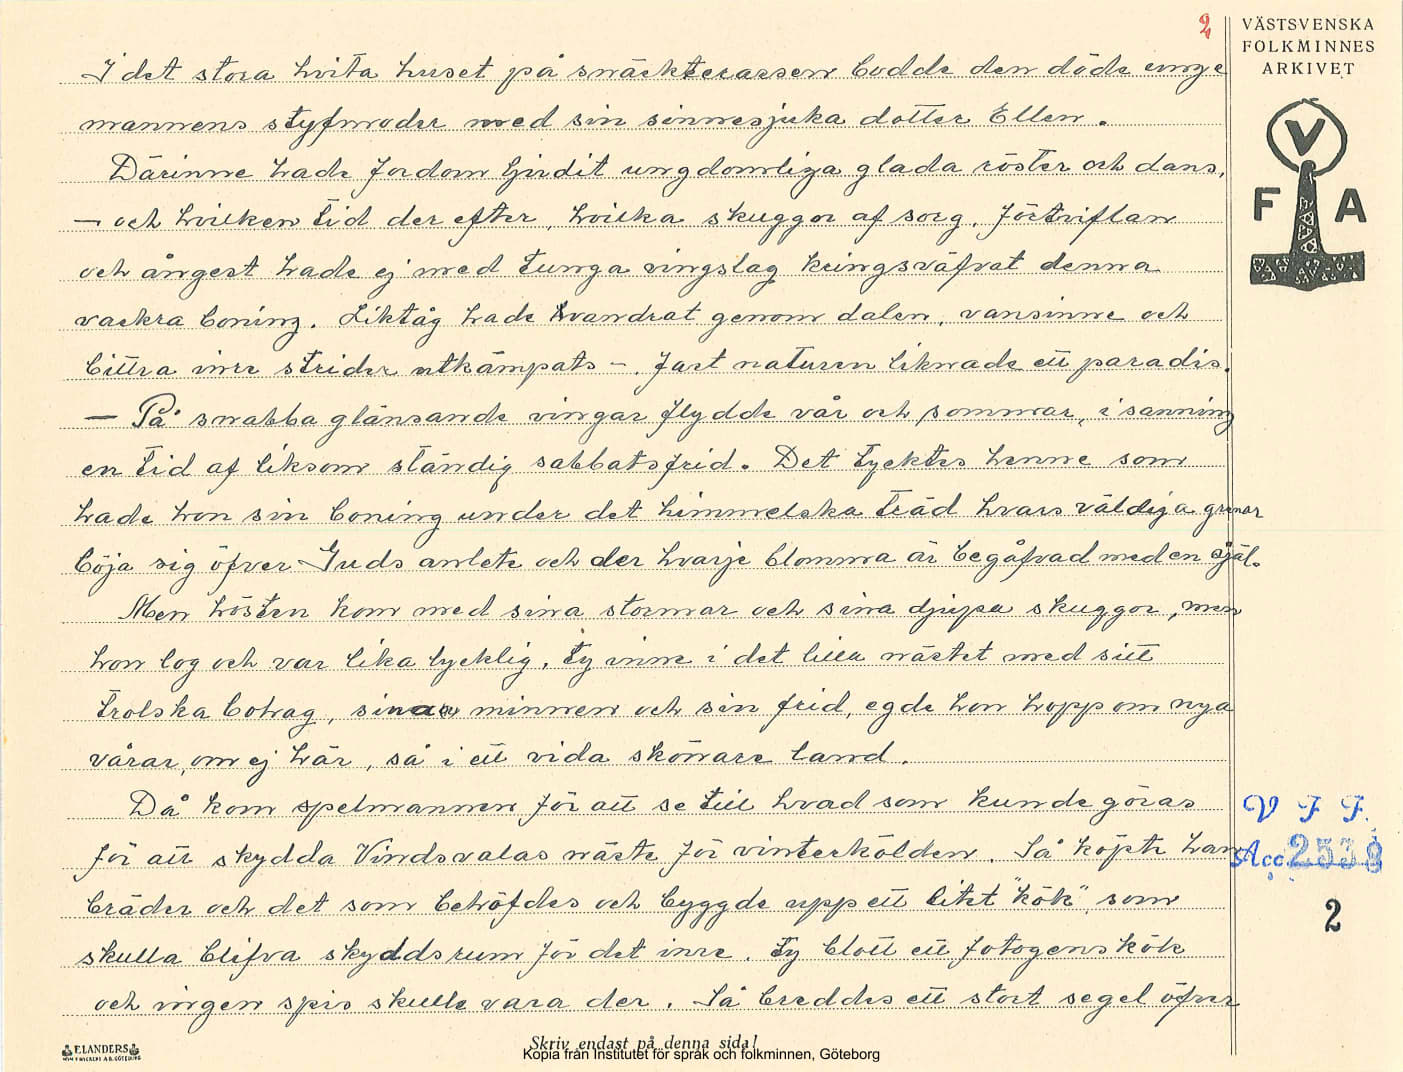 2
VÄSTSVENSKA
FOLKMINNES
ARKIVET
V
F A
I det stora hvita huset på snäckterassen bodde den döde unge
mannens styfmoder med sin sinnesjuka dotter Ellen.
Därinne hade fordom ljudit ungdomliga glada röster och dans,
— och hvilken tid der efter, hvilka skuggor af sorg, förtviflan
och ångest hade ej med tunga vingslag kringsväfvat denna
vackra boning. Liktåg hade vandrat genom dalen, vansinne och
bittra inre strider utkämpats –. fast naturen liknade ett paradis.
— På snabba glänsande vingar flydde vår och sommar, i sanning
en tid af liksom ständig sabbatsfrid. Det tycktes henne som
hade hon sin boning under det himmelska träd hvars väldiga grenar
böja sig öfver Guds anlete och der hvarje blomma är begåfvad med en själ.
Men hösten kom med sina stormar och sina djupa skuggor, men
hon log och var lika lycklig, ty inne i det lilla nästet med sitt
trolska bohag, sina minnen och sin frid, egde hon hopp om nya
vårar, om ej här, så i ett vida skönare land.
Då kom spelmannen för att se till hvad som kunde göras
för att skydda Vindsvalas näste för vinterkölden. Så köpte han
bräder och det som behöfdes och byggde upp ett litet "kök", som
skulla blifva skyddsrum för det inre. Ty blott ett fotogenskök
och ingen spis skulle vara der. Så breddes ett stort segel öfver
V F F.
Acc 2538
2
ELANDERS
Skriv endast på denna sida!
Kopia från Institutet för språk och folkminnen, Göteborg